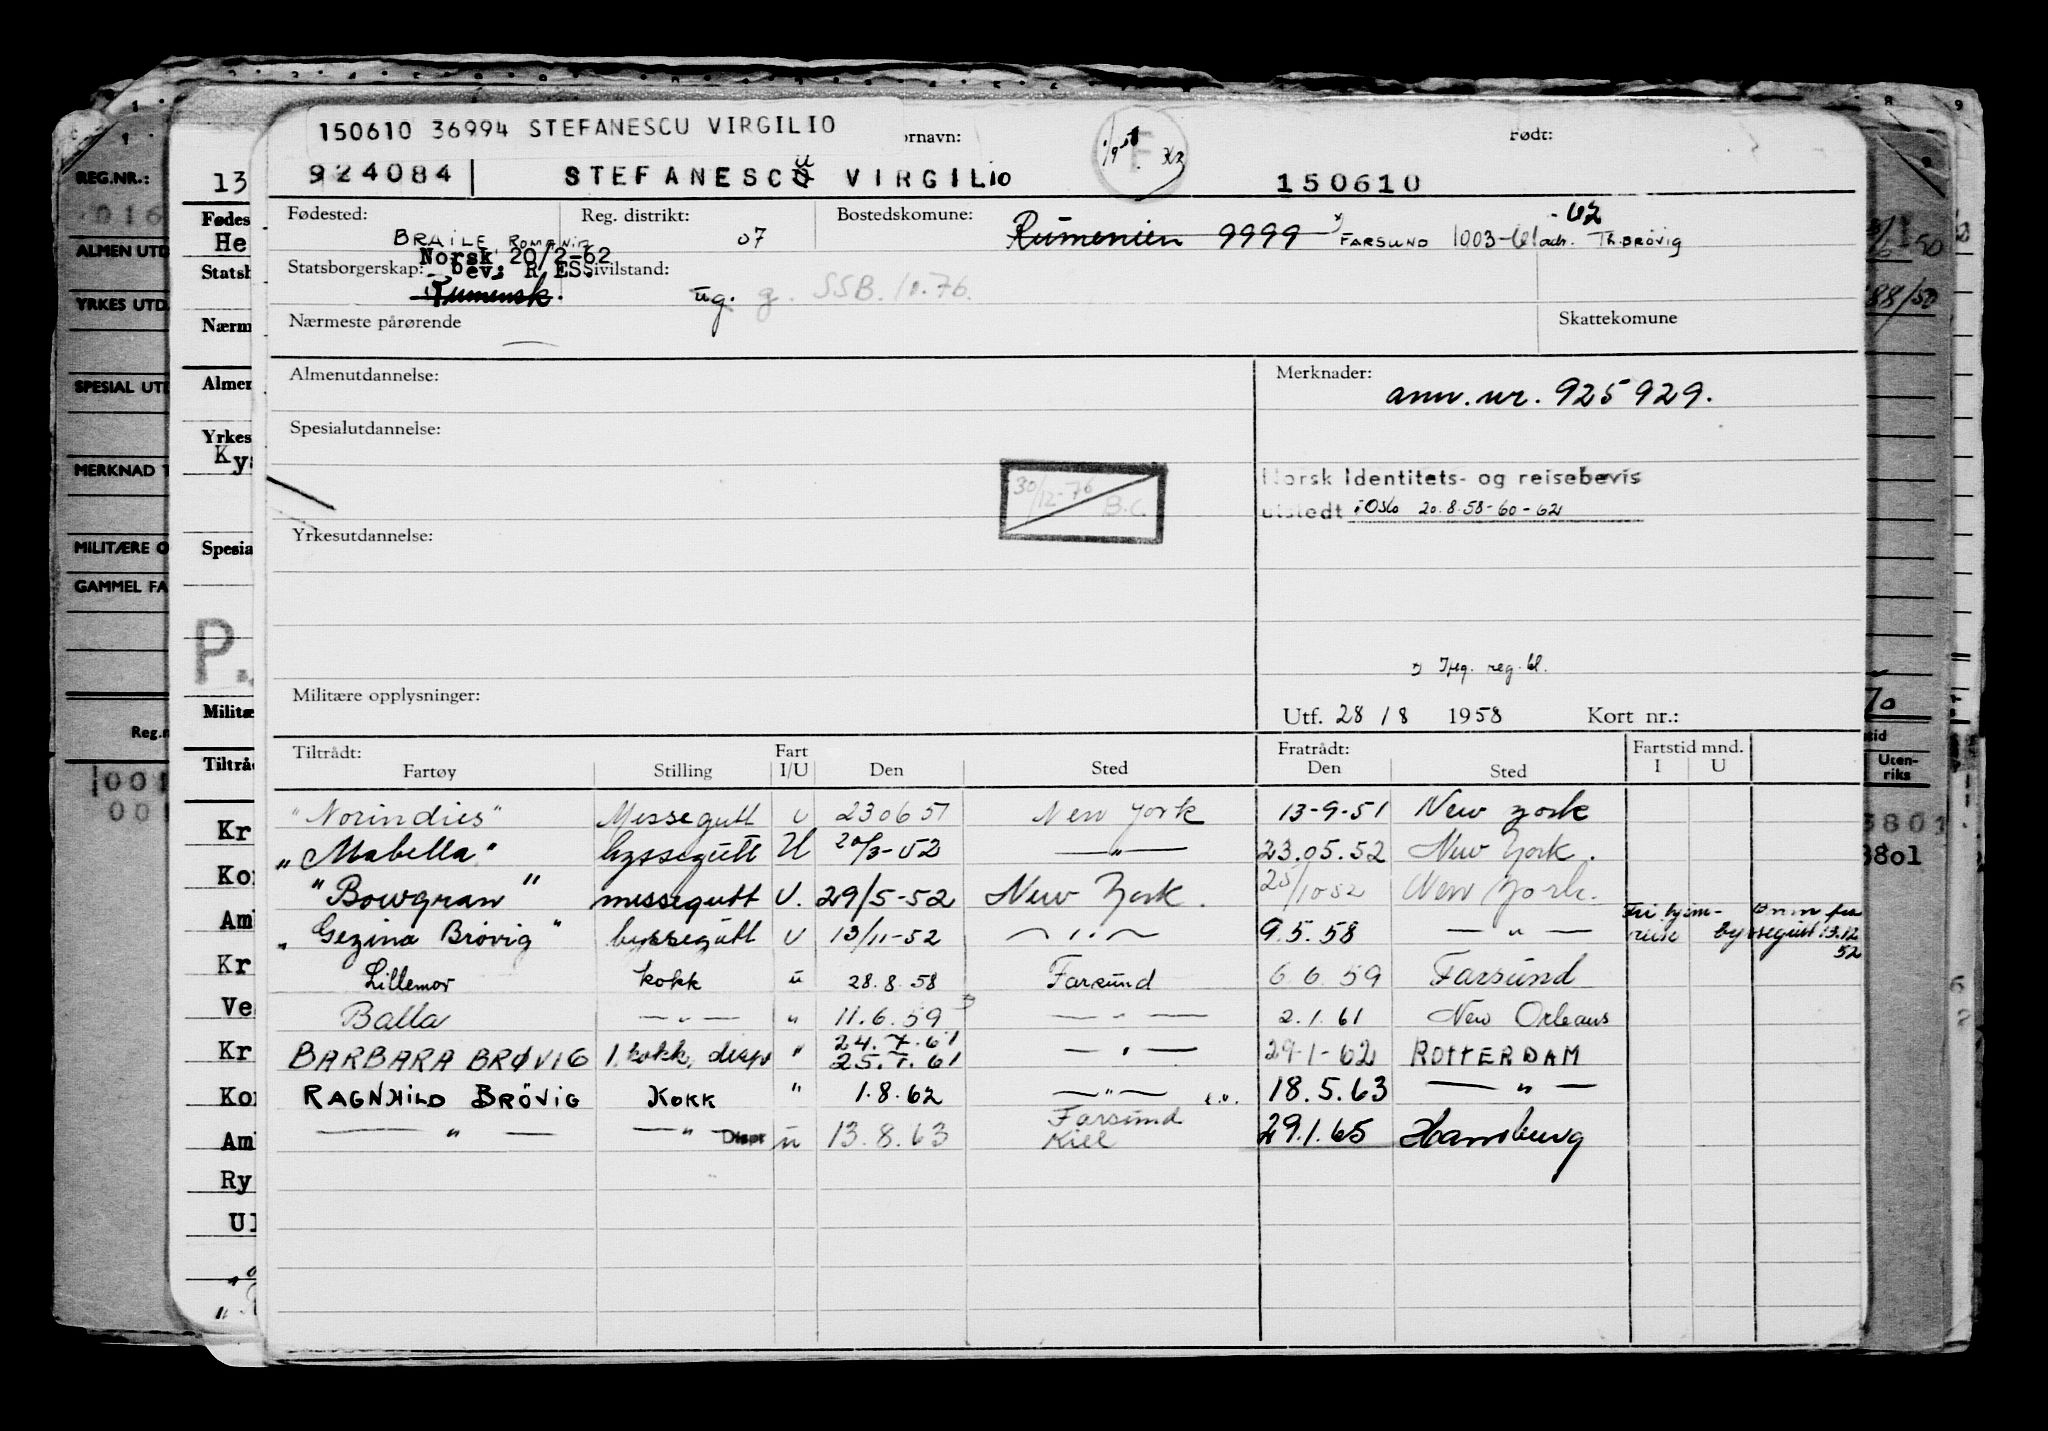 150610 36994 STEFANESCU VIRGILIO
ornavn:
Født:
924084 STEFANESCU VIRGILIO
150610
F
Fødested: BRAILE ROMANIA
Reg. distrikt: 07
Bostedskomune: Rümenien 9999 FARSUND 1003-61 adr. TH. BRØVIG
-62
Statsborgerskap: Norsk 20/2-62
bev: R ES.
Rumensk.
Sivilstand: ug. g. SSB. 10.76.
Nærmeste pårørende —
Skattekomune
Almenutdannelse:
Merknader: ann. nr. 925929.
Spesialutdannelse:
30/12-76 B.C.
Norsk Identitets- og reisebevis
utstedt i Oslo 20.8.58-60-62
Yrkesutdannelse:
reg. bl.
Militære opplysninger:
Utf. 28/8 1958 Kort nr.:
Tiltrådt: Fart Fratrådt: Fartstid mnd.
Fartøy Stilling I/U Den Sted Den Sted I U
"Norindies" Messegutt U 230651 New York 13-9-51 New York
"Mabella" byssegutt U 20/3-52 — " — 23.05.52 New York.
"Bowgran" messegutt U. 29/5-52 New York. 25/10 52 New York.
"Gezina Brøvig" byssegutt U 13/11-52 — " — 9.5.58 — " — Fri hjem-
reise byssegutt 13.12
52
Lillemor kokk u 28.8.58 Farsund 6.6.59 Farsund
Balla — " — " 11.6.59 — " — 2.1.61 New Orleans
BARBARA BRØVIG 1. kokk, disp " 24.7.61
25.7.61 — " — 29-1-62 ROTTERDAM
RAGNHILD BRÖVIG KOKK " 1.8.62 — " — 18.5.63 — " —
— " — — " — Disp u 13.8.63 Farsund
Kiel 29.1.65 Hamburg
REG.NR.:
016
ALMEN UTD
YRKES UTD.
SPESIAL UTD
MERKNAD T
MILITÆRE O
GAMMEL FA
Reg.n
001
001
13
Fødes
He
Statsb
Nærm
Almen
Yrkes
Kys
Spesia
P.
Militæ
Tiltrå
Kr
Kon
Amb
Kr
Ve
Kr
Kon
Amb
Ry
Ul
50
88/50
70
tid
Uten-
riks
3801
3801